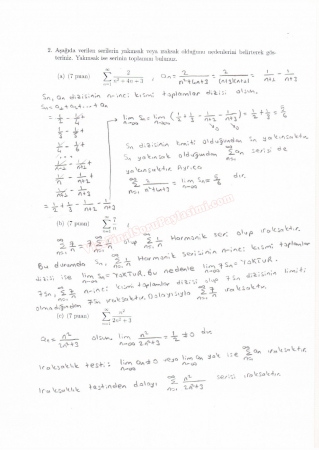 2. Aşağıda verilen serilerin yakınsak veya ıraksak olduğunu nedenlerini belirterek gösteriniz. Yakınsak ise serinin toplamını bulunuz.
(a) (7 puan) ∑_{n=1}^{∞} 2/(n²+4n+3) , aₙ = 2/(n²+4n+3) = 2/((n+1)(n+3)) = 1/(n+1) - 1/(n+3)
Sn, an dizisinin n-inci kısmi toplamlar dizisi olsun,
Sn = a₁+a₂+...+an
= 1/2 - 1/4 +
1/3 - 1/5 +
1/4 - 1/6 +
...
= 1/2 + 1/3 - 1/(n+2) - 1/(n+3)
lim_{n→∞} Sn = lim_{n→∞} (1/2 + 1/3 - 1/(n+2) - 1/(n+3)) = 1/2 + 1/3 = 5/6
Sn dizisinin limiti olduğundan Sn yakınsaktır
Sn yakınsak olduğundan ∑_{n=1}^{∞} an serisi de
yakınsaktır. Ayrıca
∑_{n=1}^{∞} 2/(n²+4n+3) = lim_{n→∞} Sn = 5/6 dır.
(b) (7 puan) ∑_{n=1}^{∞} 7/n
∑_{n=1}^{∞} 7/n = 7 ∑_{n=1}^{∞} 1/n olup ∑_{n=1}^{∞} 1/n Harmonik seri olup ıraksaktır.
Bu durumda Sn, ∑_{n=1}^{∞} 1/n Harmonik serisinin n-inci kısmi toplamlar
dizisi ise lim_{n→∞} Sn = YOKTUR. Bu nedenle lim_{n→∞} 7Sn = YOKTUR.
7Sn, ∑_{n=1}^{∞} 7/n n-inci kısmi toplamlar dizisi olup 7Sn dizisinin limiti
olmadığından 7Sn ıraksaktır. Dolayısıyla ∑_{n=1}^{∞} 7/n ıraksaktır
(c) (7 puan) ∑_{n=1}^{∞} n²/(2n²+3)
an = n²/(2n²+3) olsun, lim_{n→∞} n²/(2n²+3) = 1/2 ≠ 0 dır
Iraksaklık testi: lim_{n→∞} an ≠ 0 veya lim_{n→∞} an yok ise ∑_{n=1}^{∞} an ıraksaktır
Iraksaklık testinden dolayı ∑_{n=1}^{∞} n²/(2n²+3) serisi ıraksaktır.